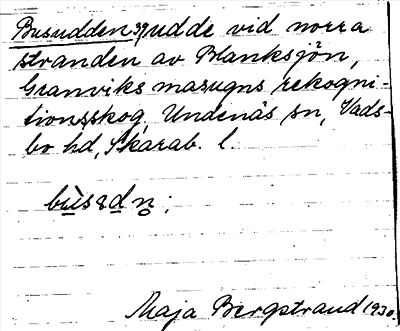 Busudden 39, udde vid norra
stranden av Blanksjön,
Granviks masugns rekogni-
tionsskog, Undenäs sn, Vads-
bo hd, Skarab. l.
bùsɛdn̥;
Maja Bergstrand 1930.